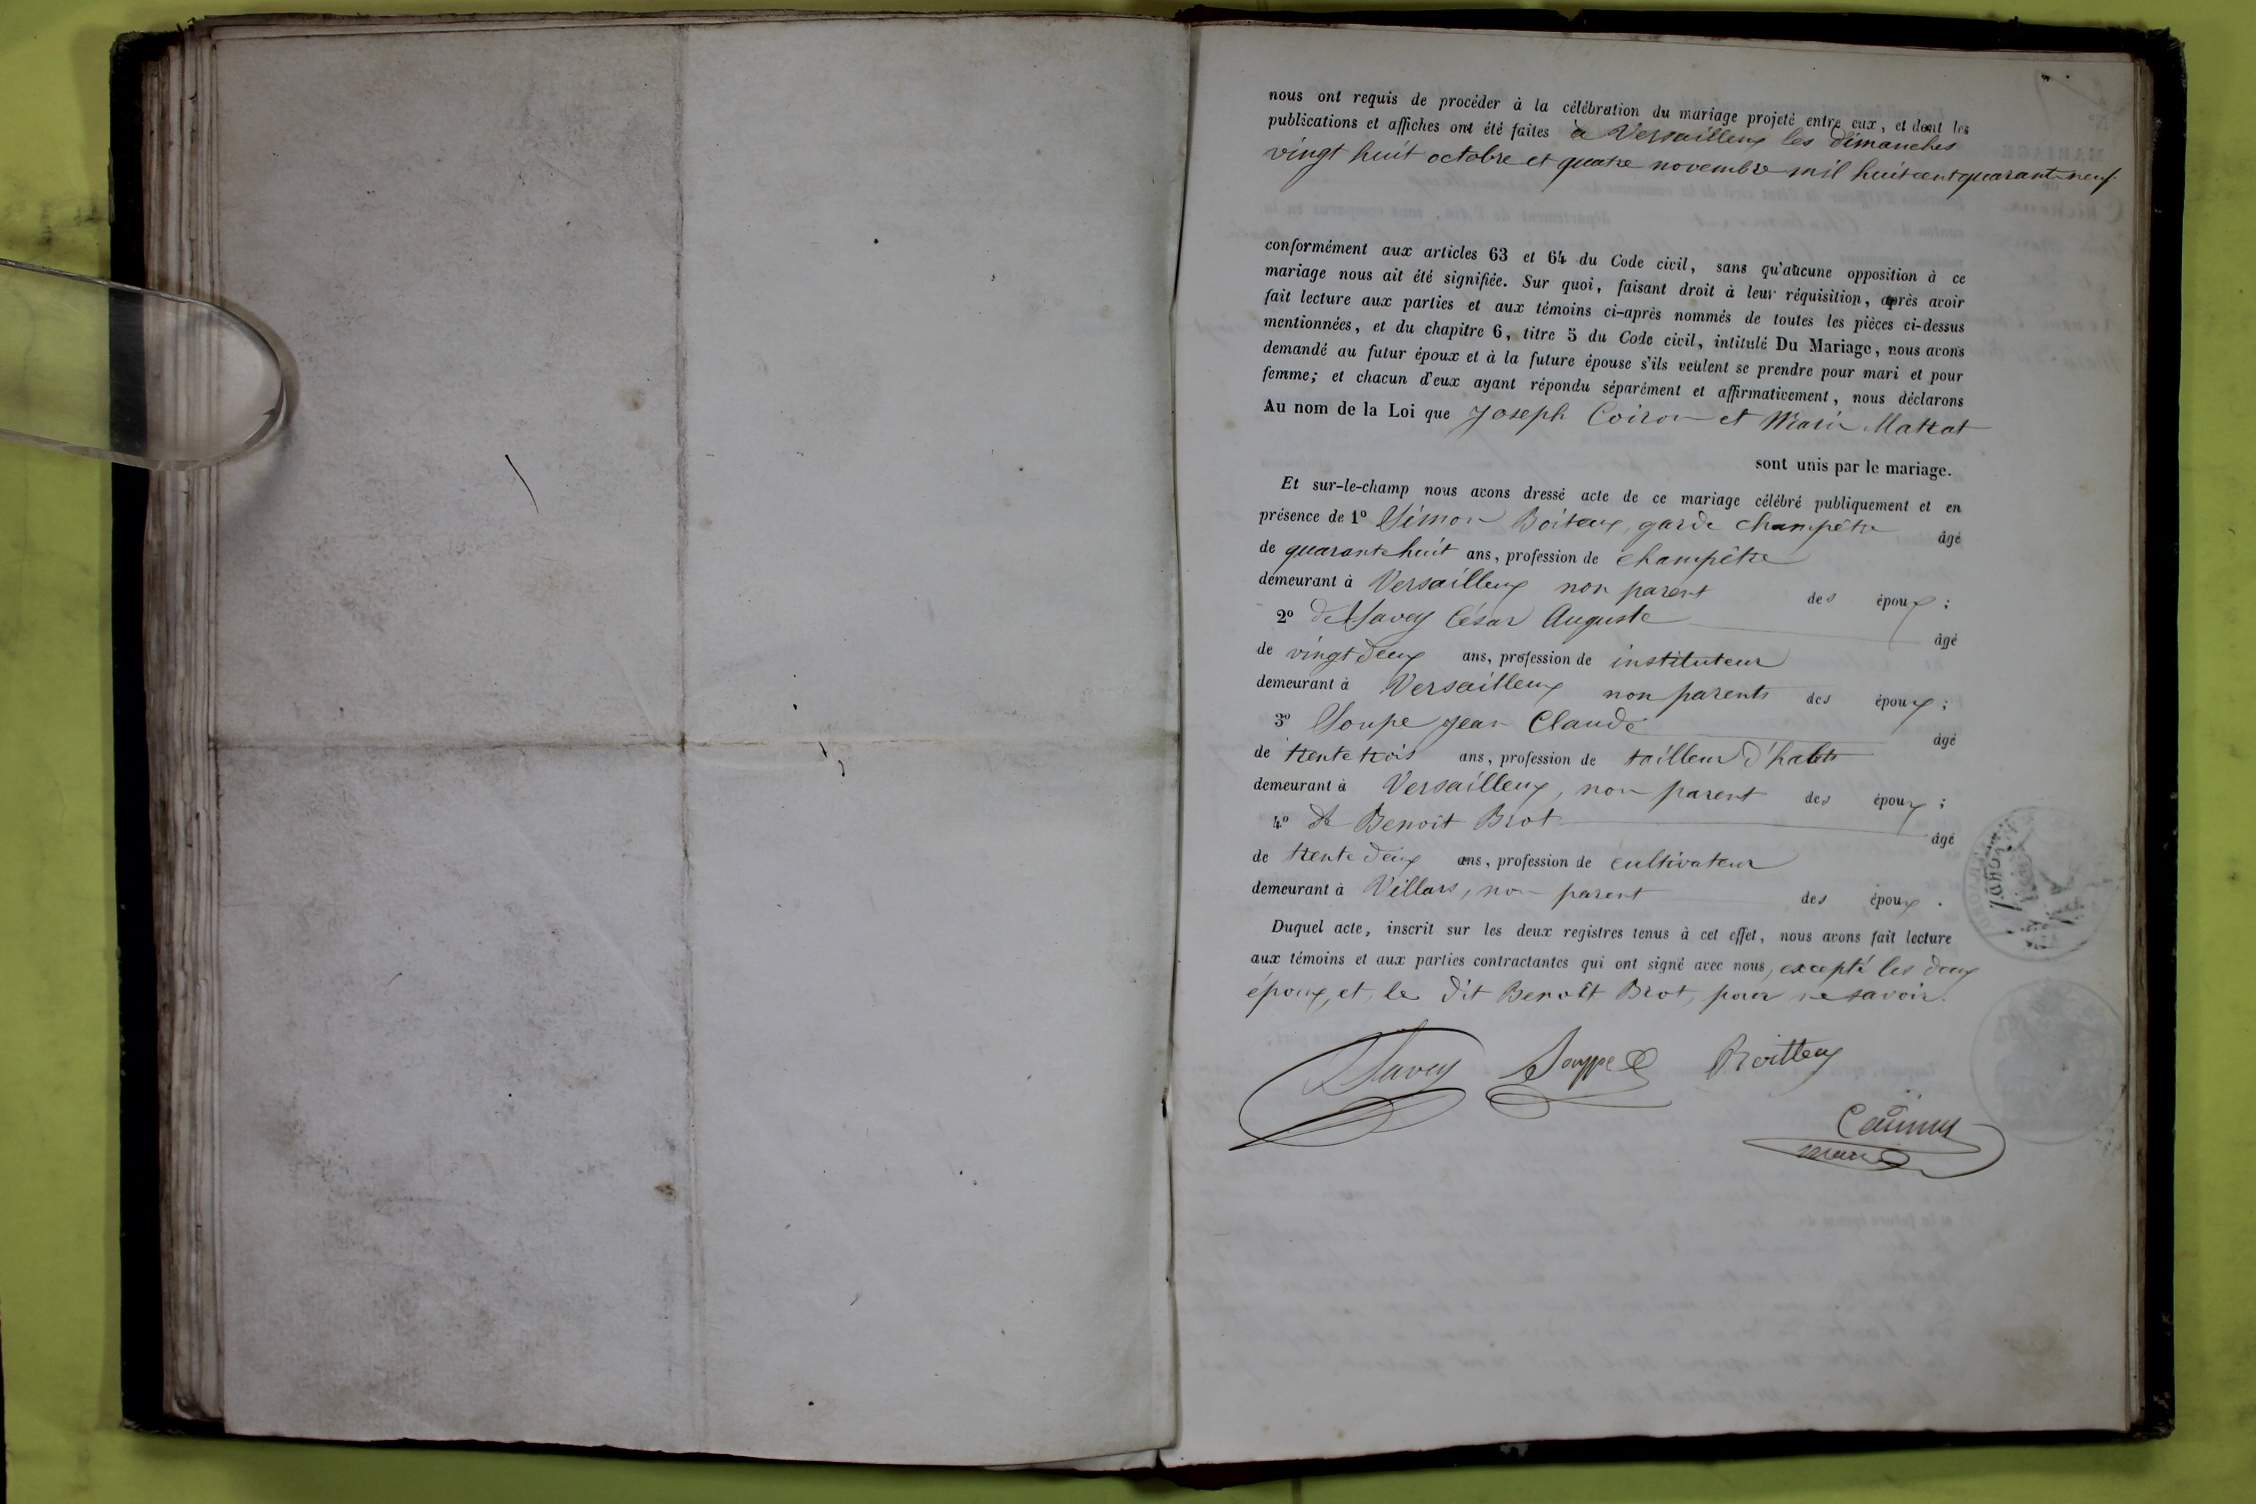 nous ont requis de procéder à la célébration du mariage projeté entre eux, et dont les
publications et affiches ont été faites à Versailleux les dimanches
vingt huit octobre et quatre novembre mil huit cent quarante neuf
conformément aux articles 63 et 64 du Code civil, sans qu'aucune opposition à ce
mariage nous ait été signifiée. Sur quoi, faisant droit à leur réquisition, après avoir
fait lecture aux parties et aux témoins ci-après nommés de toutes les pièces ci-dessus
mentionnées, et du chapitre 6, titre 5 du Code civil, intitulé Du Mariage, nous avons
demandé au futur époux et à la future épouse s'ils veulent se prendre pour mari et pour
femme; et chacun d'eux ayant répondu séparément et affirmativement, nous déclarons
Au nom de la Loi que Joseph Coiron et Marie Mattat
sont unis par le mariage.
Et sur-le-champ nous avons dressé acte de ce mariage célébré publiquement et en
présence de 1º Simon Boiteux, garde champêtre âgé
de quarante huit ans, profession de champêtre
demeurant à Versailleux non parent des époux;
2º de Savey César Auguste âgé
de vingt deux ans, profession de instituteur
demeurant à Versailleux non parents des époux;
3º Soupe Jean Claude âgé
de trente trois ans, profession de tailleur d'habits
demeurant à Versailleux, non parent des époux;
4º de Benoit Brot âgé
de trente deux ans, profession de cultivateur
demeurant à Villars, non parent des époux.
Duquel acte, inscrit sur les deux registres tenus à cet effet, nous avons fait lecture
aux témoins et aux parties contractantes qui ont signé avec nous, excepté les deux
époux, et le dit Benoît Brot, pour ne savoir.
Savey Souppe Boitteux
maire